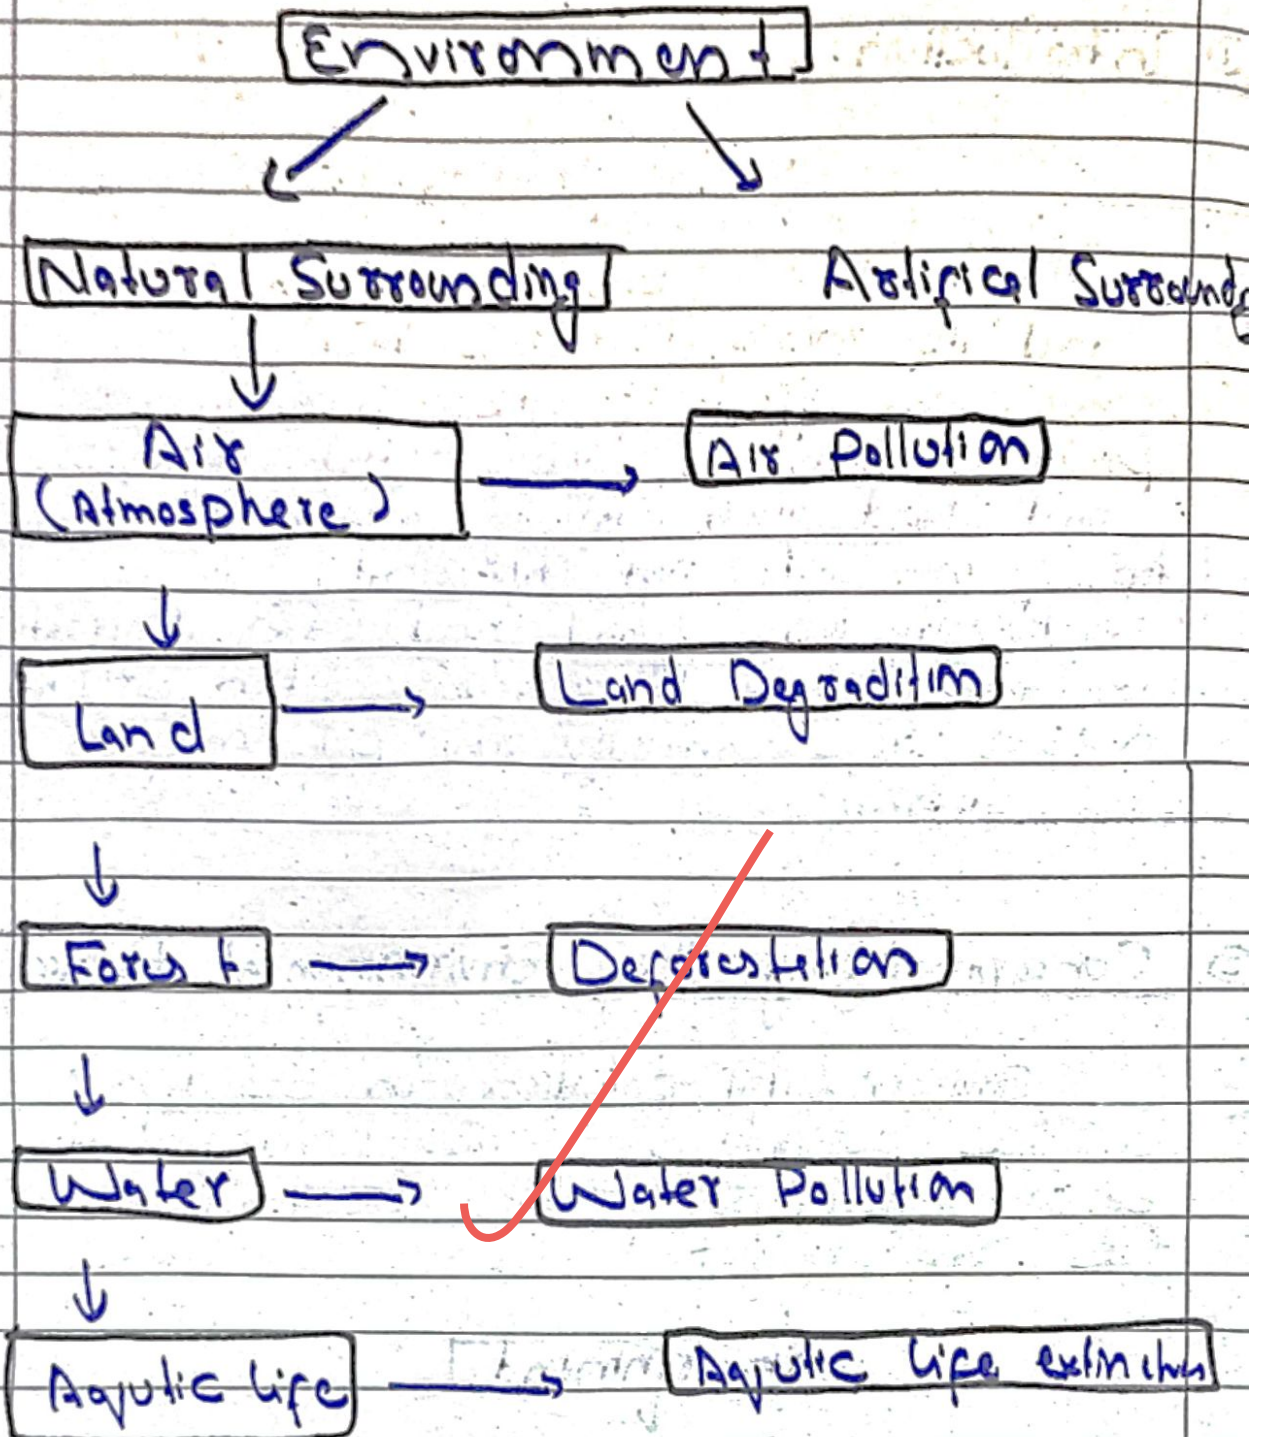 Environment
Natural Surrounding
Artifical Surrounding
Air
(Atmosphere)
Air Pollution
Land
Land Degradition
Forest
Deforestetion
Water
Water Pollution
Aqutic life
Aqutic life extinction